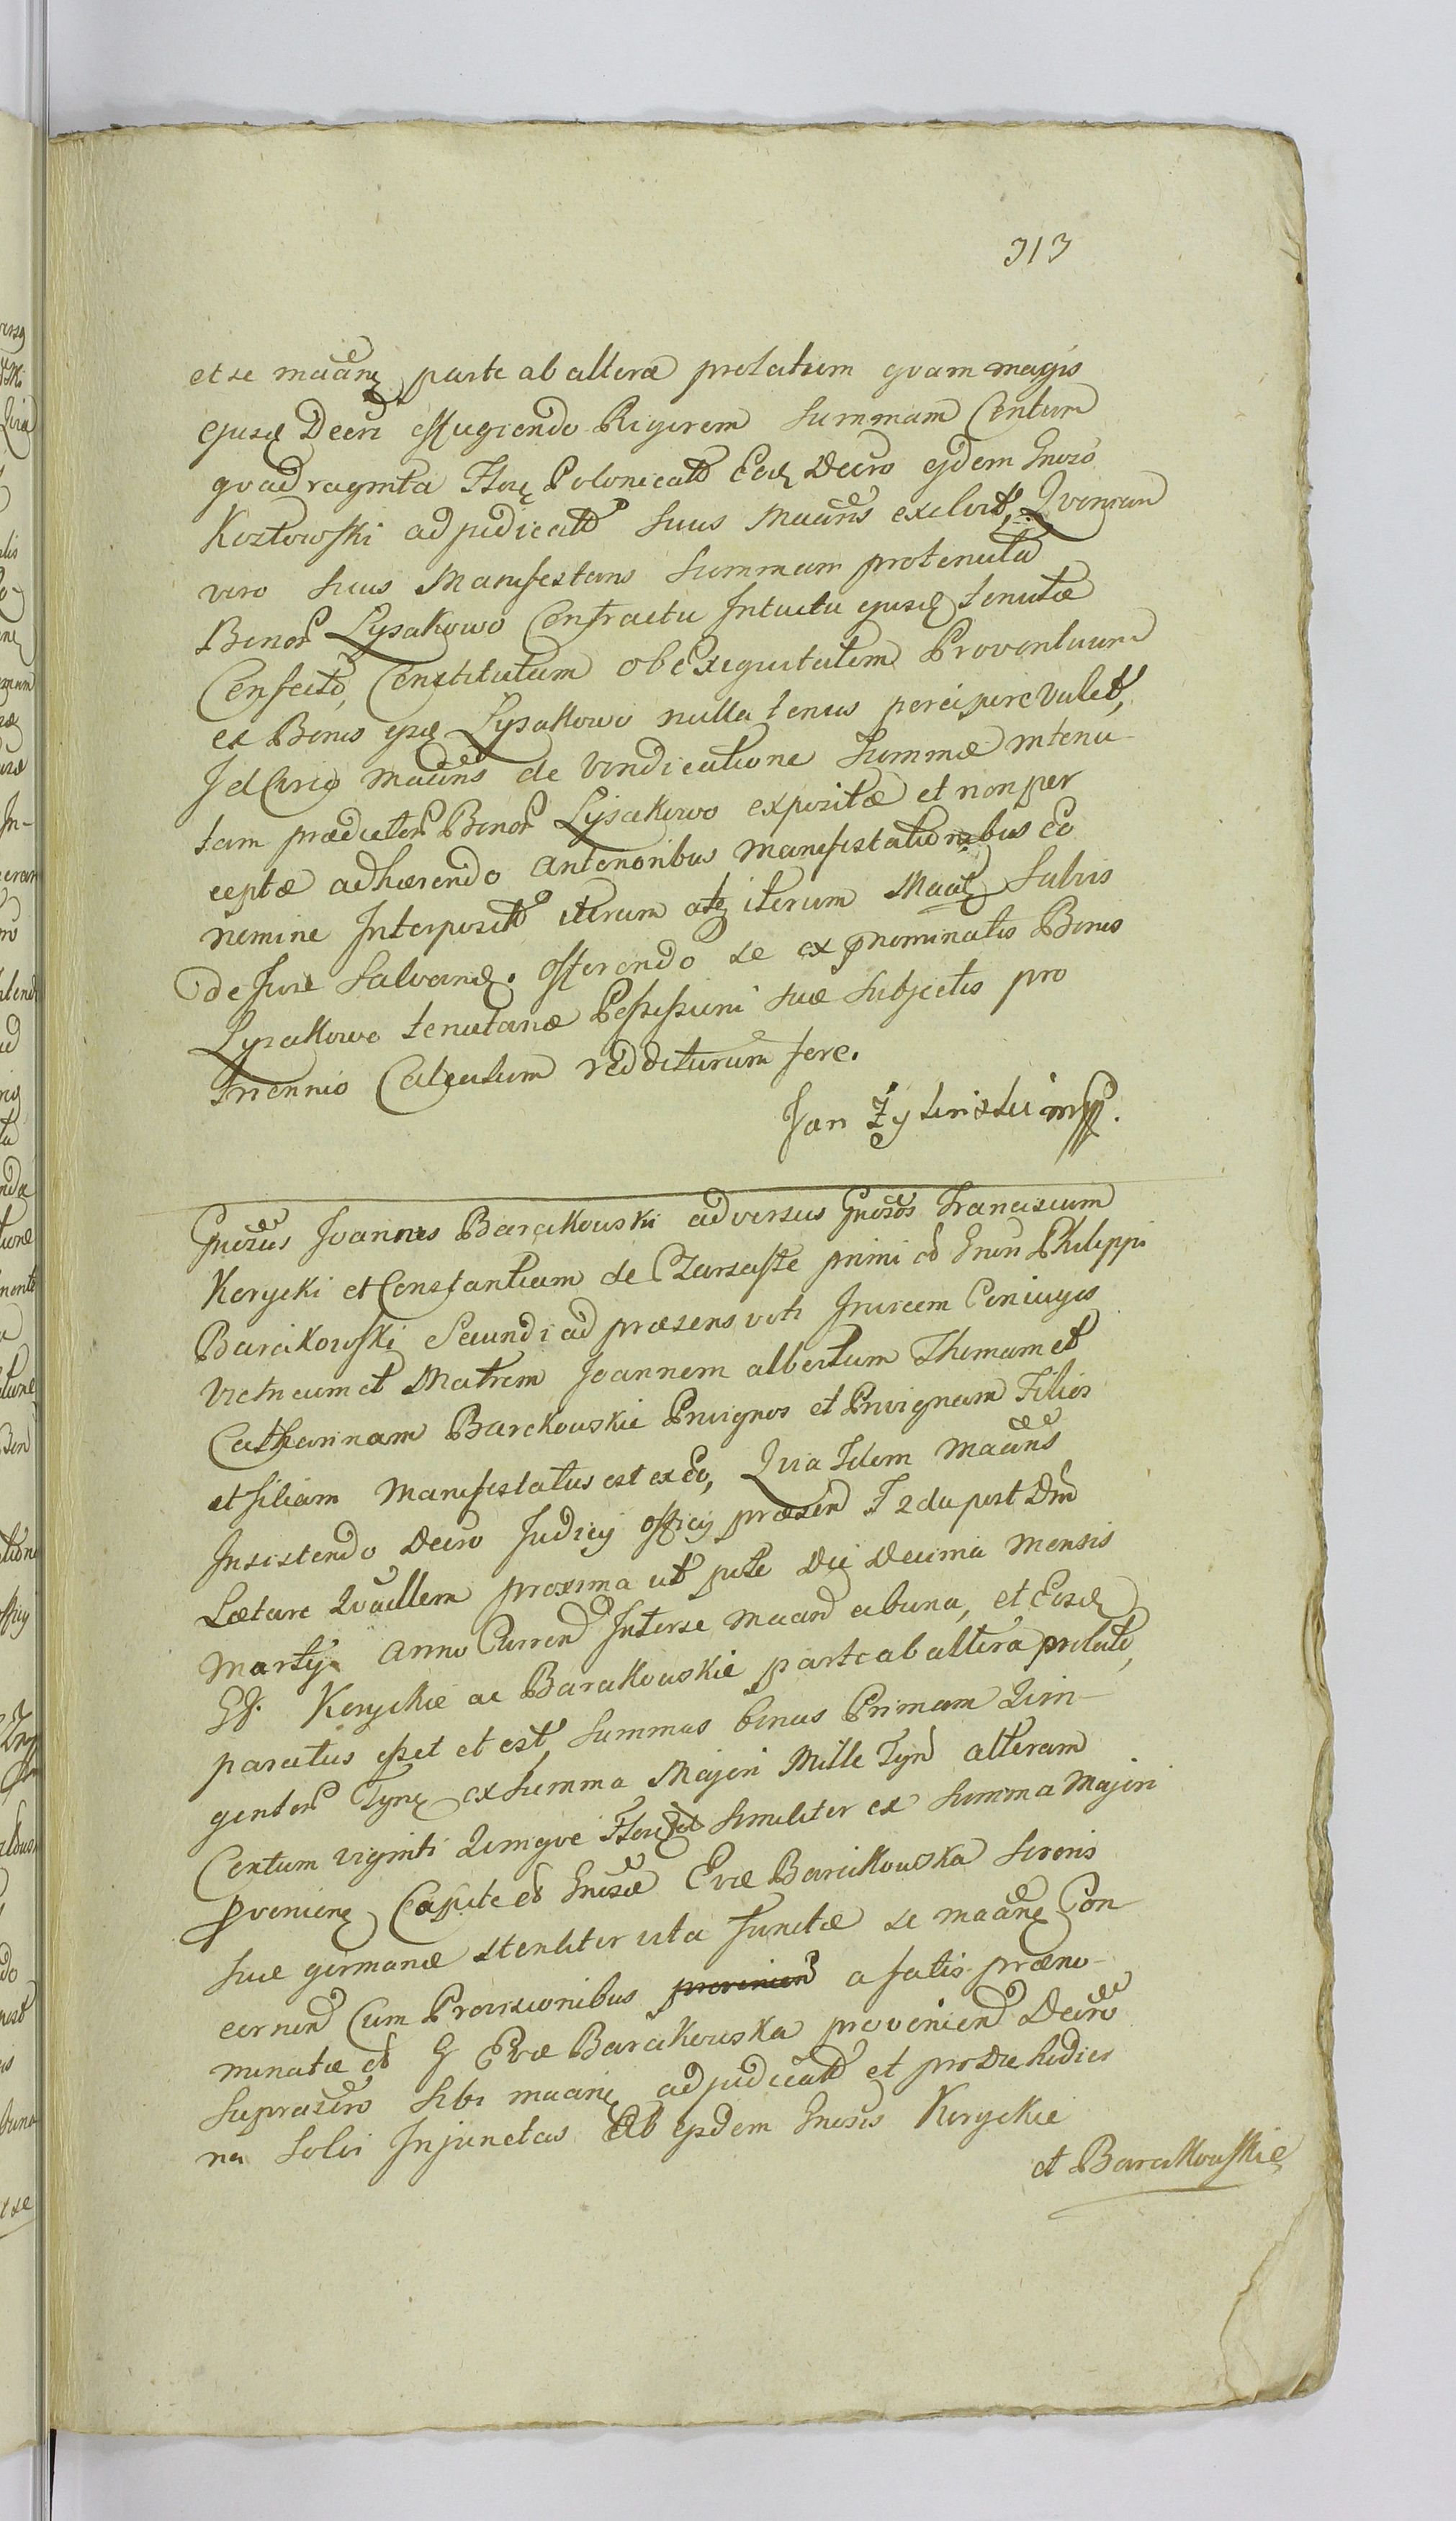 313
et se maãne parte ab altera prolatum qvam magis
ejusq Decri effugiendo Rigorem Summam Centum
qvadraginta Flor Polonicał Eodq Decro ejdem Gnoso
Kozłowski adjudicał huus Maãns exsolvit, Qvoniam
vero huus Manifestans Summam protenuta
Bonor Łysakowo Contractu Intuitu ejusq tenutæ
Confecto, Constitutam ob Exiguitatem Proventuum
ex Bonis ejsq Łysakowo nulla tenus percipere valet,
Id Circo maãns de Vindicatione Summæ intenu-
tam prædictor Bonor Łysakowo expositæ et non per
ceptæ adhærendo anterioribus manifestationibus eo
nomine Interposił iterum atq iterum Maał Salvis
de Jure Salvand. offerendo se ex pnominatis Bonis
Łysakowo tenutariæ Possessioni suæ Subjectis pro
triennio Calculum redditurum fore.
Jan Żytinski mpp.
Gnosus Joannes Barcikowski adversus Gnosos Franciscum
Korycki et Constantiam de Czarzaste primi od Gnon Philippi
Barcikowski Secundi ad præsens voti Invicem Coniuges
Victricum et Matrem Joannem albertum Thomam et
Catharinam Barckowskie Privignos et Privignam Filios
et filiam Manifestatus est ex Eo, Qvia Idem Maãns
Insistendo Decro Judicy officy præsen F 2da post Dm
Lætare Qvaɗllem proxima ut pote Die Decima Mensis
Marty anno Curren Inter se maan ab una, et Eosd
GG. Koryckie ac Barcikowskie parte ab altera prolato,
paratus esset et est, Summas binas Primam Qvin-
gentor Tynf ex Summa Majori Mille Tynf alteram
Centum viginti Qvinqve Flor Similiter ex Summa Majori
pvenienq Capite od Gnosæ Evæ Barcikowska Sororis
suæ germanæ steriliter vita functæ se maãne Con-
cernen Cum Provisionibus provenien a fatis præno-
minatæ od G Evæ Barcikowska provenien Decro
Suprascro Sibi maane adjudicał et pro Die hodier
na Solvi Injunctas Ab ejsdem Gnosis Koryckie
et Barcikowskie